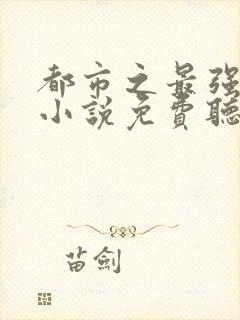 都市之最强
小說免費聽
苗劍